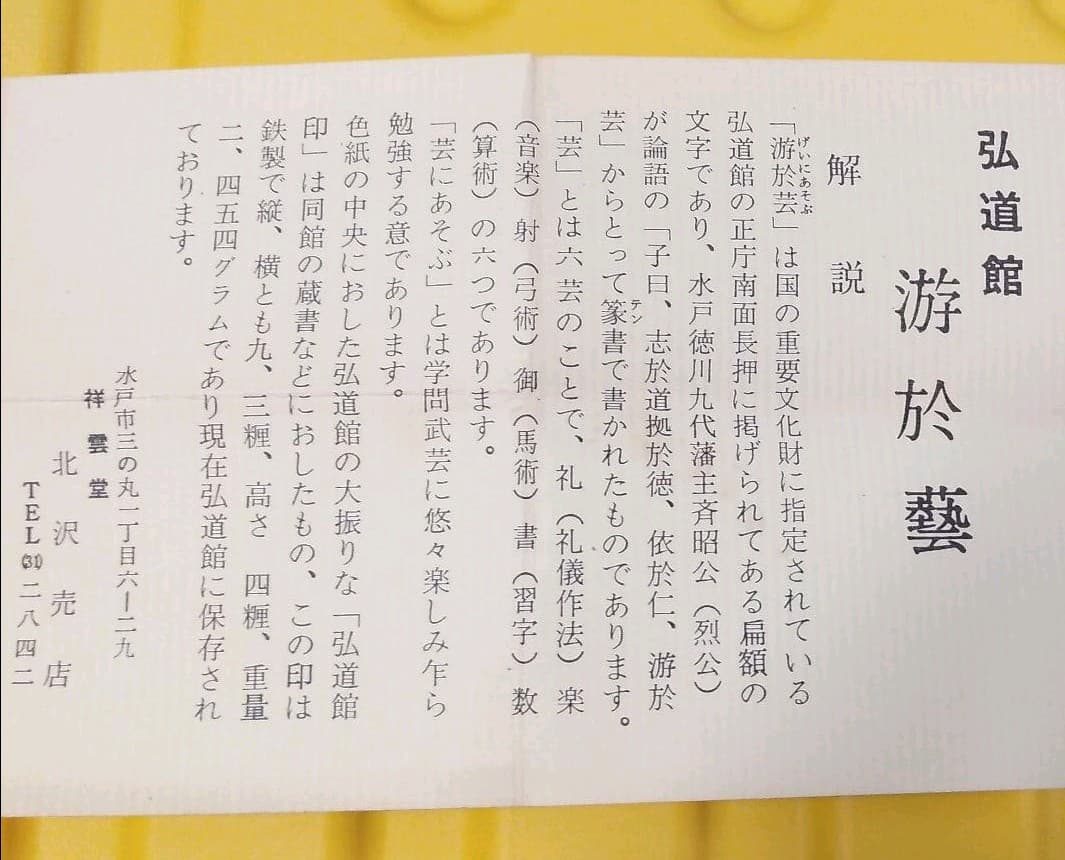 弘道館
游於藝
解説
「游於芸」は国の重要文化財に指定されている
げいにあそぶ
弘道館の正庁南面長押に掲げられてある扁額の
文字であり、水戸徳川九代藩主斉昭公（烈公）
が論語の「子曰、志於道拠於徳、依於仁、游於
芸」からとって篆書で書かれたものであります。
テン
「芸」とは六芸のことで、礼（礼儀作法）楽
（音楽）射（弓術）御（馬術）書（習字）数
（算術）の六つであります。
「芸にあそぶ」とは学問武芸に悠々楽しみ乍ら
勉強する意であります。
色紙の中央におした弘道館の大振りな「弘道館
印」は同館の蔵書などにおしたもの、この印は
鉄製で縦、横とも九、三糎、高さ 四糎、重量
二、四五四グラムであり現在弘道館に保存され
ております。
水戸市三の丸一丁目六ー二九
祥雲堂
北沢売店
TEL(31)二八四二